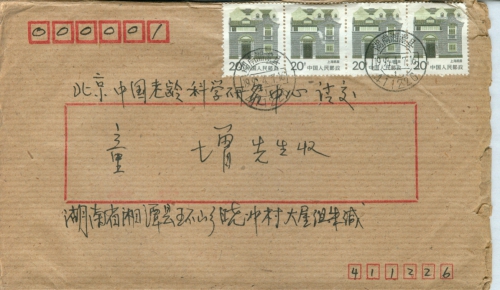 000001
20分 中国人民邮政 20分 中国人民邮政 20分 中国人民邮政 20分 中国人民邮政
北京中国老龄科学研究中心 请交
童增先生收
湖南省湘潭县 冲村大屋组朱
411226